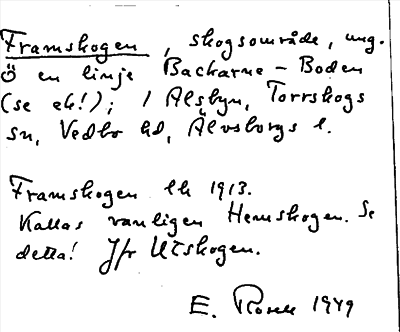 Framskogen, skogsområde, ung.
ö en linje Backarne – Boden
(se ek!); i Älsbyn, Torrskogs
sn, Vedbo hd, Älvsborgs l.
Framskogen Ek 1913.
Kallas vanligen Hemskogen. Se
detta! Jfr Utskogen.
E. Rosell 1949